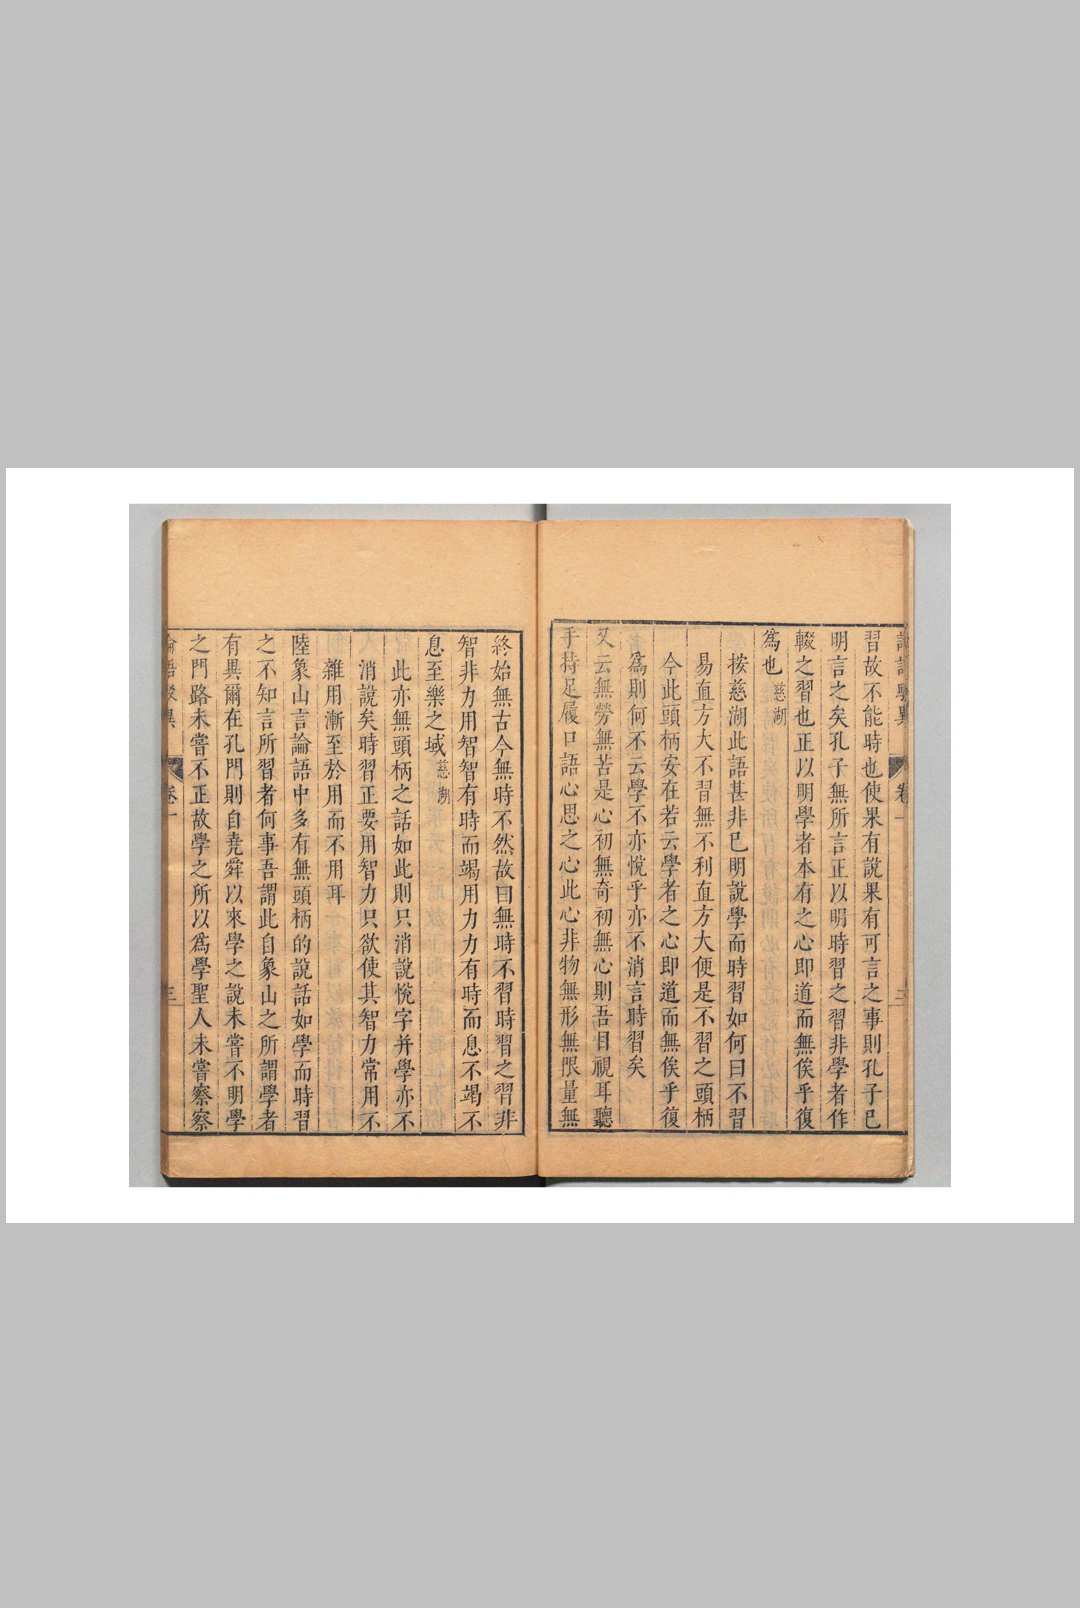 習故不能時也使果有說果有可言之事則孔子已
明言之矣孔子無所言正以明時習之習非學者作
輟之習也正以明學者本有之心即道而無俟乎復
為也慈湖
按慈湖此語甚非已明說學而時習如何曰不習
易直方大不習無不利直方大便是不習之頭柄
今此頭柄安在若云學者之心即道而無俟乎復
為則何不云學不亦悅乎亦不消言時習矣
又云無勞無苦是心初無奇初無心則吾目視耳聽
手持足履口語心思之心此心非物無形無限量無
終始無古今無時不然故曰無時不習時習之習非
智非力用智智有時而竭用力力有時而息不竭不
息至樂之域慈湖
此亦無頭柄之話如此則只消說悅字并學亦不
消說矣時習正要用智力只欲使其智力常用不
雜用漸至於用而不用耳
陸象山言論語中多有無頭柄的說話如學而時習
之不知言所習者何事吾謂此自象山之所謂學者
有異爾在孔門則自堯舜以來學之說未嘗不明學
之門路未嘗不正故學之所以為學聖人未嘗察察
論語駁異
卷一
三